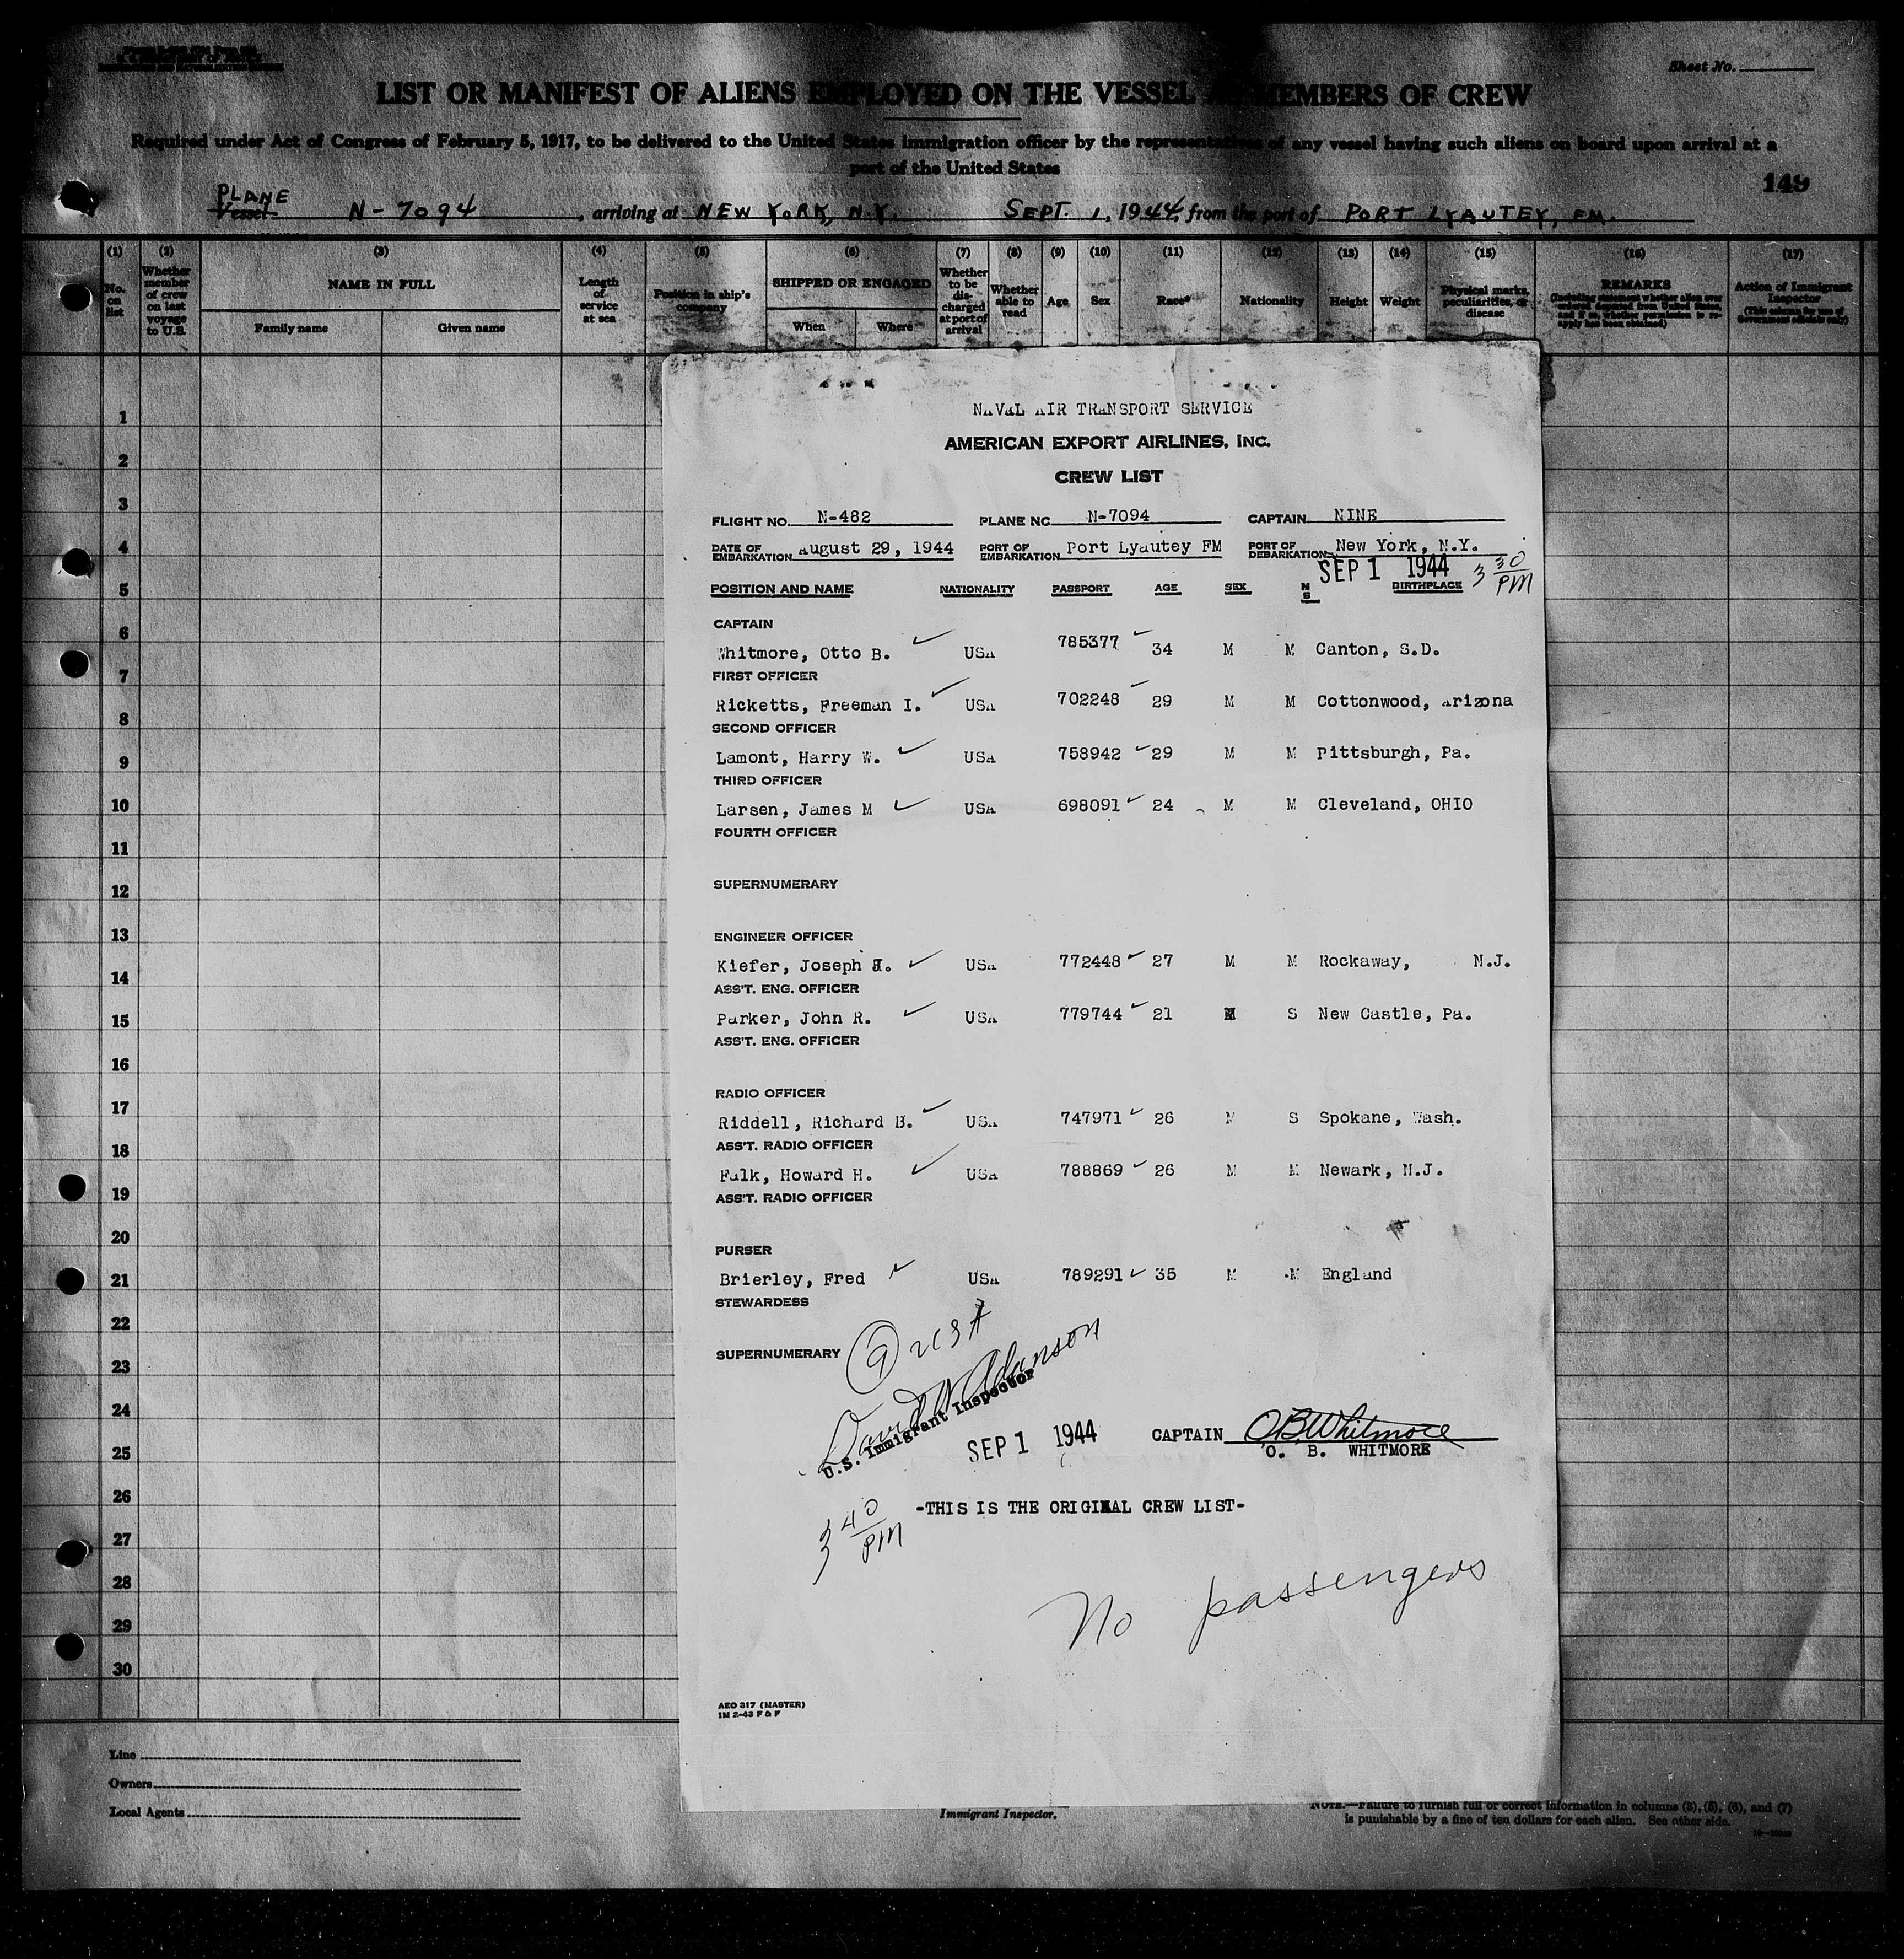 Sheet No.
LIST OR MANIFEST OF ALIENS EMPLOYED ON THE VESSEL AS MEMBERS OF CREW
Required under Act of Congress of February 5, 1917, to be delivered to the United States immigration officer by the representatives of any vessel having such aliens on board upon arrival at a
port of the United States
149
PLANE
Vessel N-7094, arriving at NEW YORK, N.Y. SEPT. 1, 1944, from the port of PORT LYAUTEY, FM.
(1) (2) (3) (4) (5) (6) (7) (8) (9) (10) (11) (12) (13) (14) (15) (16) (17)
No. on list
Whether member of crew on last voyage to U.S.
NAME IN FULL
Family name Given name
Length of service at sea
Position in ship's company
SHIPPED OR ENGAGED
When Where
Whether to be discharged at port of arrival
Whether able to read
Age
Sex
Race*
Nationality
Height
Weight
Physical marks, peculiarities, or disease
REMARKS
(Including statement whether alien ever ordered deported from United States, and if so, whether permission to re-apply has been obtained)
Action of Immigrant Inspector
(This column for use of Government officials only)
1
2
3
4
5
6
7
8
9
10
11
12
13
14
15
16
17
18
19
20
21
22
23
24
25
26
27
28
29
30
NAVAL AIR TRANSPORT SERVICE
AMERICAN EXPORT AIRLINES, INC.
CREW LIST
FLIGHT NO. N-482 PLANE NO. N-7094 CAPTAIN NINE
DATE OF EMBARKATION August 29, 1944 PORT OF EMBARKATION Port Lyautey FM PORT OF DEBARKATION New York, N.Y.
SEP 1 1944 3 30 PM
POSITION AND NAME NATIONALITY PASSPORT AGE SEX M S BIRTHPLACE
CAPTAIN
Whitmore, Otto B. USA 785377 34 M M Canton, S.D.
FIRST OFFICER
Ricketts, Freeman I. USA 702248 29 M M Cottonwood, Arizona
SECOND OFFICER
Lamont, Harry W. USA 758942 29 M M Pittsburgh, Pa.
THIRD OFFICER
Larsen, James M USA 698091 24 M M Cleveland, OHIO
FOURTH OFFICER
SUPERNUMERARY
ENGINEER OFFICER
Kiefer, Joseph USA 772448 27 M M Rockaway, N.J.
ASS'T. ENG. OFFICER
Parker, John R. USA 779744 21 M S New Castle, Pa.
ASS'T. ENG. OFFICER
RADIO OFFICER
Riddell, Richard B. USA 747971 26 M S Spokane, Wash.
ASS'T. RADIO OFFICER
Falk, Howard H. USA 788869 26 M M Newark, N.J.
ASS'T. RADIO OFFICER
PURSER
Brierley, Fred USA 789291 35 M M England
STEWARDESS
SUPERNUMERARY
9 USA
David W Adamson
U.S. Immigrant Inspector
SEP 1 1944
CAPTAIN O B Whitmore
O. B. WHITMORE
3 40 PM
-THIS IS THE ORIGINAL CREW LIST-
No passengers
AEO 317 (MASTER)
1M 2-43 F & F
Line
Owners
Local Agents
Immigrant Inspector.
NOTE.—Failure to furnish full or correct information in columns (3), (5), (6), and (7)
is punishable by a fine of ten dollars for each alien. See other side.